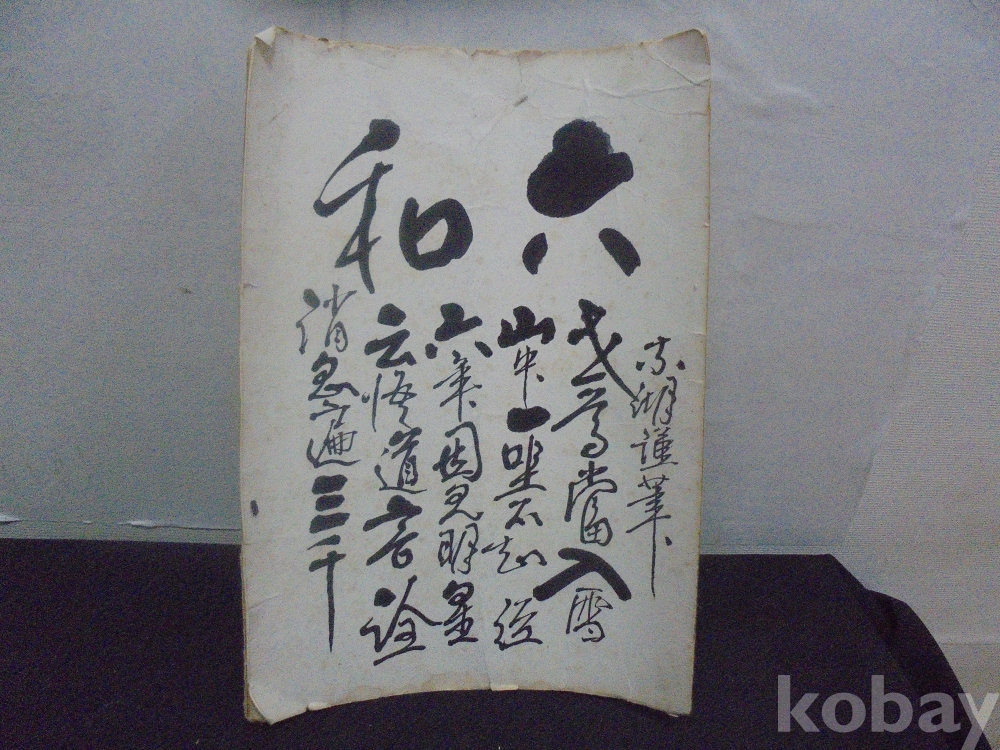 六和
湖謹筆
世尊當入雪
山中一坐不知經
六年因見明星
云悟道言詮
消息遍三千
kobay